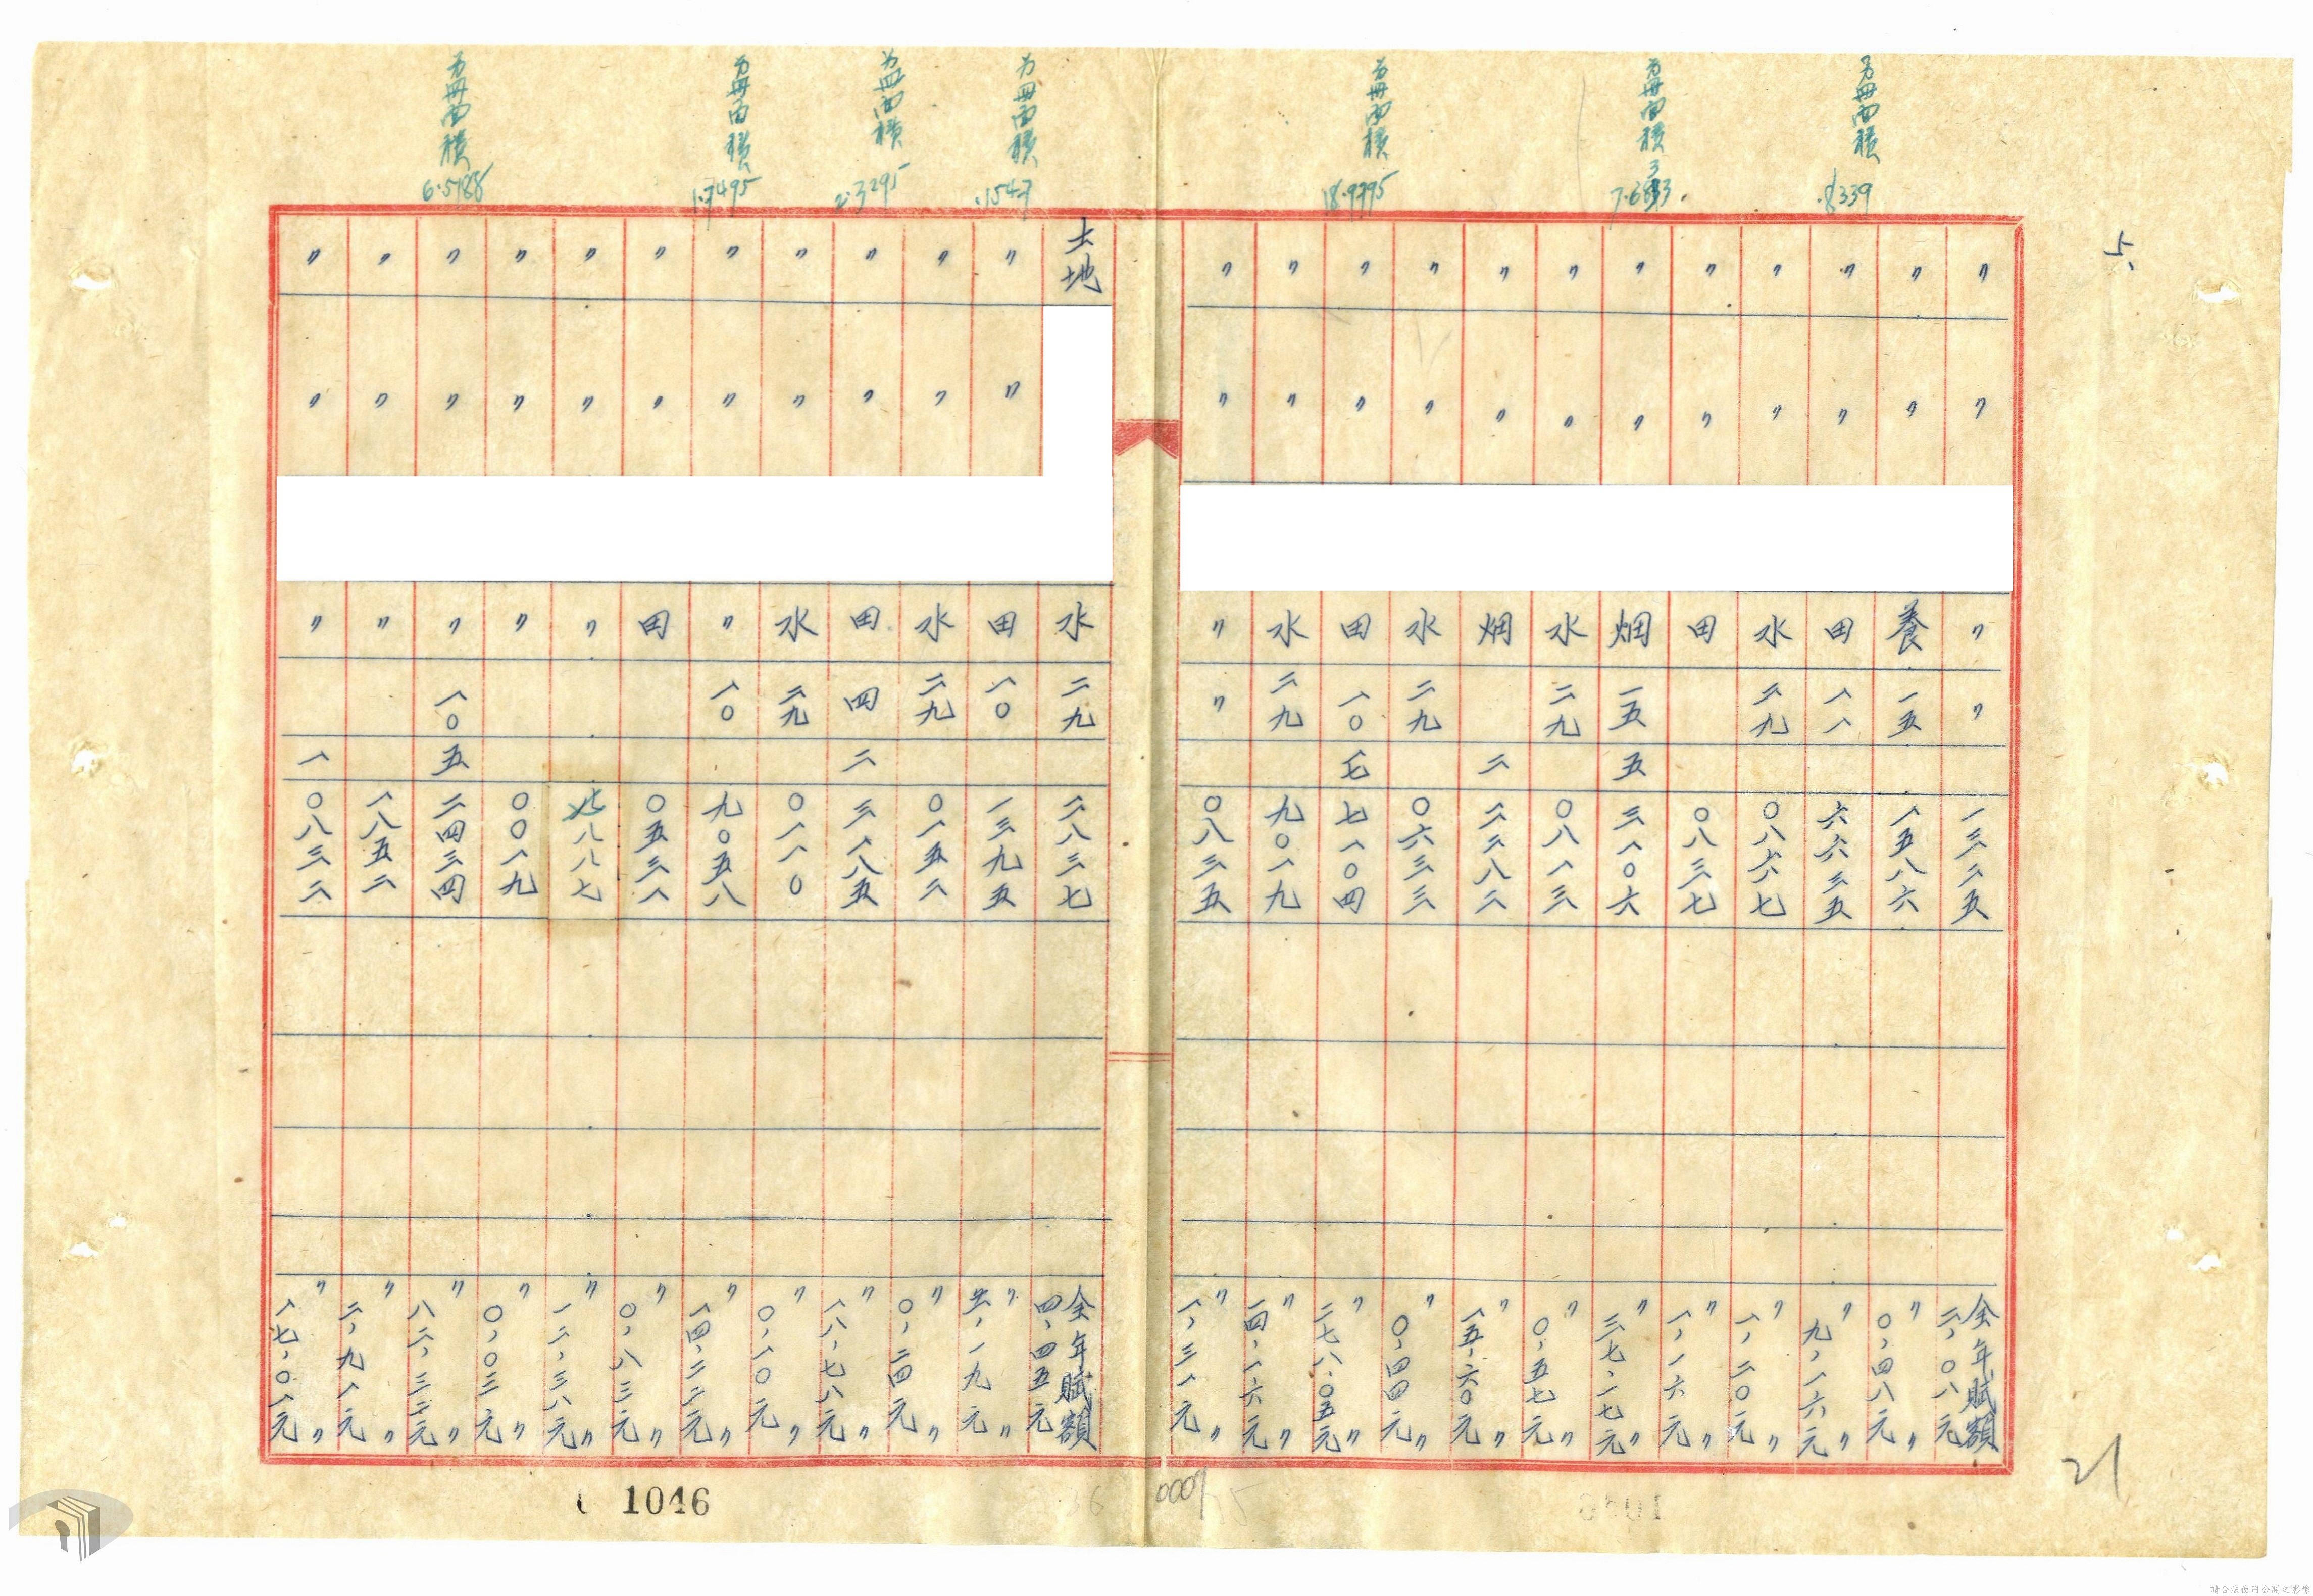 5、
〃 〃 〃 一三二五 全年賦額二、〇八元
〃 〃 養 一五 一五八六 〃〇、四八元〃
为冊面積 .8339
〃 〃 田 一一 六六三五 〃九、一六元〃
〃 〃 水 二九 〇八六七 〃一、二〇元〃
〃 〃 田 〇八三七 〃一、一六元〃
为冊面積
〃 〃 畑 一五 五 三一〇六 〃三七、一七元〃
〃 〃 水 二九 〇八一三 〃〇、五七元〃
〃 〃 畑 二 二三八二 〃一五、六〇元〃
〃 〃 水 二九 〇六三三 〃〇、四四元〃
为冊面積 18.9795
〃 〃 田 一〇 七 七一〇四 〃二七八、〇五元〃
〃 〃 水 二九 九〇一九 〃一四、一六元〃
〃 〃 〃 〃 〇八三五 〃一、三一元〃
土地 水 二九 二八三七 全年賦額四、四五元
为冊面積 .1547
〃 〃 田 一〇 一三九五 〃、一九元〃
〃 〃 水 二九 〇一五二 〃〇、二四元〃
为冊面積 2.3295
〃 〃 田 四 二 三一八五 〃一八、七八元〃
〃 〃 水 二九 〇一一〇 〃〇、一〇元〃
为冊面積 1.7495
〃 〃 〃 一〇 九〇五八 〃一四、二二元〃
〃 〃 田 〇五三一 〃〇、八三元〃
〃 〃 〃 八八七 〃一二、三八元〃
〃 〃 〃 〇〇一九 〃〇、〇三元〃
为冊面積 6.5188
〃 〃 〃 一〇 五 二四三四 〃八二、三二元〃
〃 〃 〃 一八五二 〃二、九一元〃
〃 〃 〃 一 〇八三二 〃一七、〇一元〃
1046
21
請合法使用公開之影像